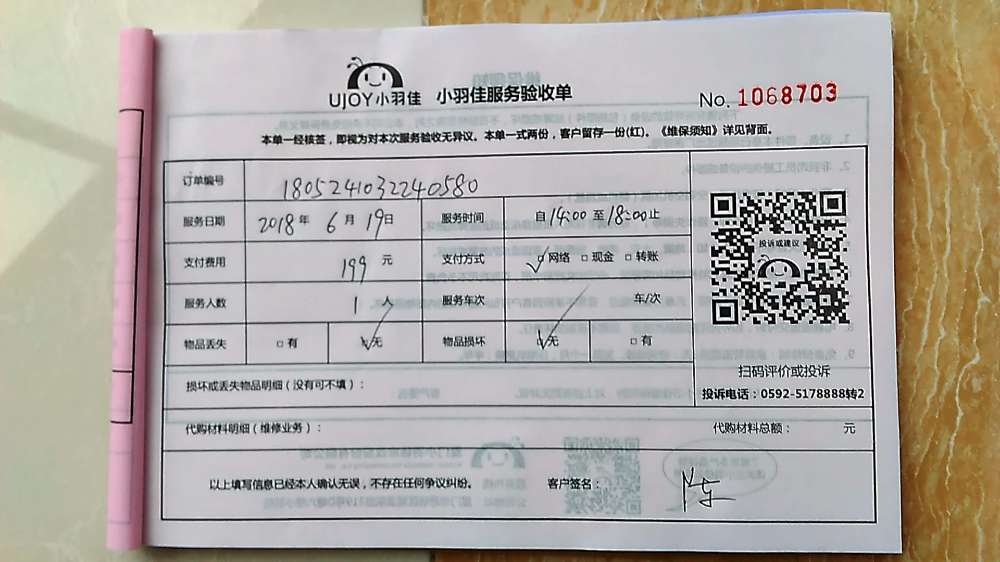 UJOY小羽佳 小羽佳服务验收单 No. 1068703
本单一经核签，即视为对本次服务验收无异议。本单一式两份，客户留存一份(红)。《维保须知》详见背面。
订单编号 1805241032240580
服务日期 2018年 6月 19日 服务时间 自14:00至18:00止
支付费用 199元 支付方式 ✓□网络 □现金 □转账
服务人数 1人 服务车次 车/次
物品丢失 □有 ✓□无 物品损坏 ✓□无 □有
投诉或建议
扫码评价或投诉
投诉电话：0592-5178888转2
损坏或丢失物品明细（没有可不填）：
代购材料明细（维修业务）： 代购材料总额： 元
以上填写信息已经本人确认无误，不存在任何争议纠纷。 客户签名： 陈